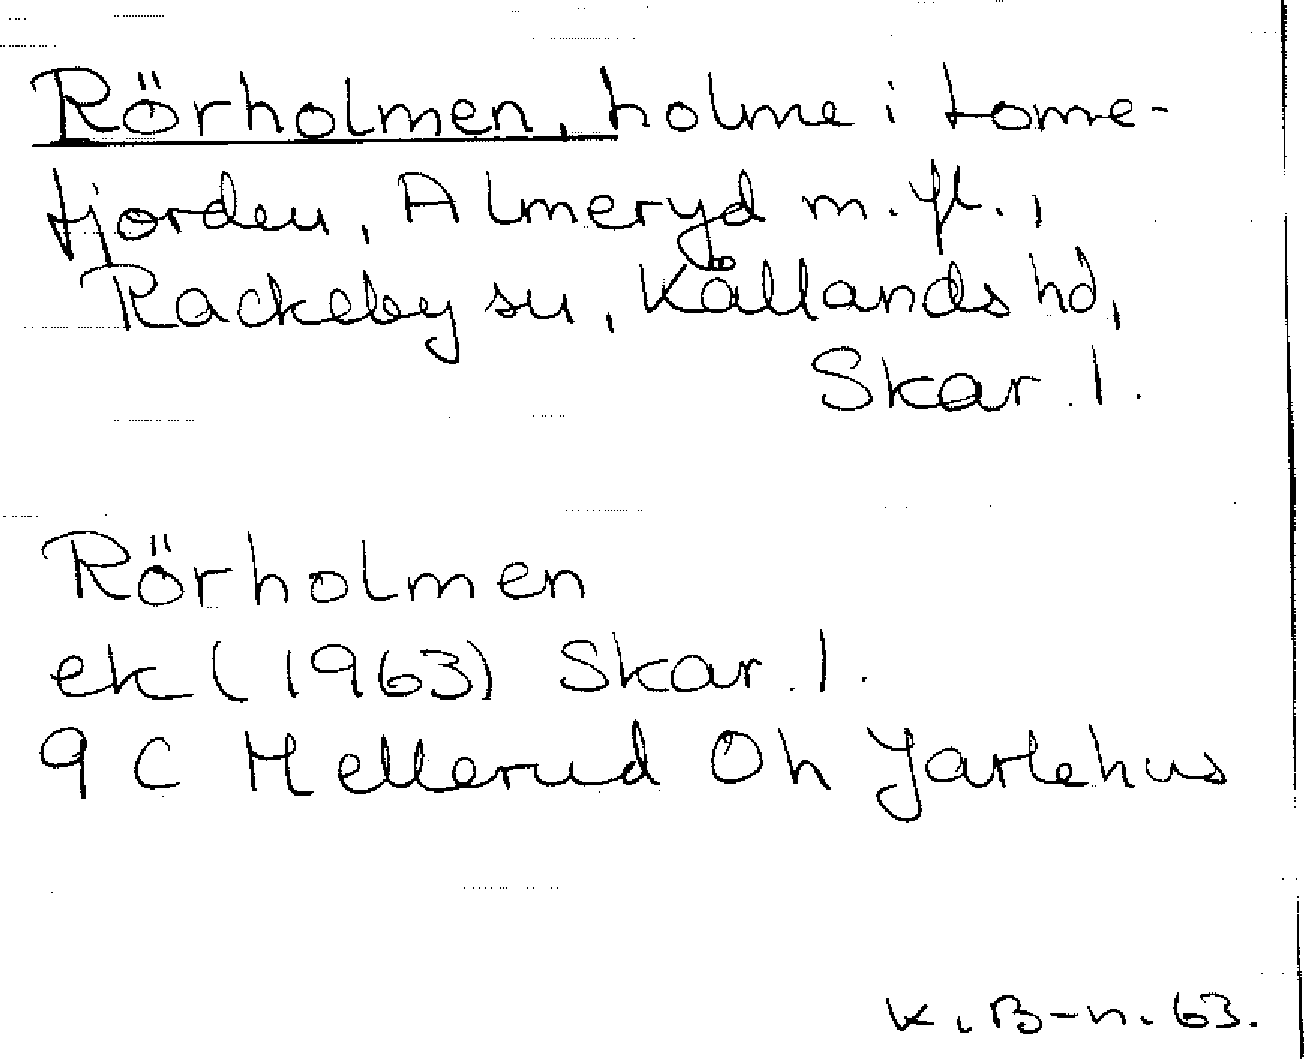 Rörholmen, holme i tome-
fjorden, Almeryd m.fl.,
Rackeby sn, Kållands hd,
Skar. l.
Rörholmen
ek (1963) Skar. l.
9 C Mellerud Öh Jarlehus
K. B-n. 63.